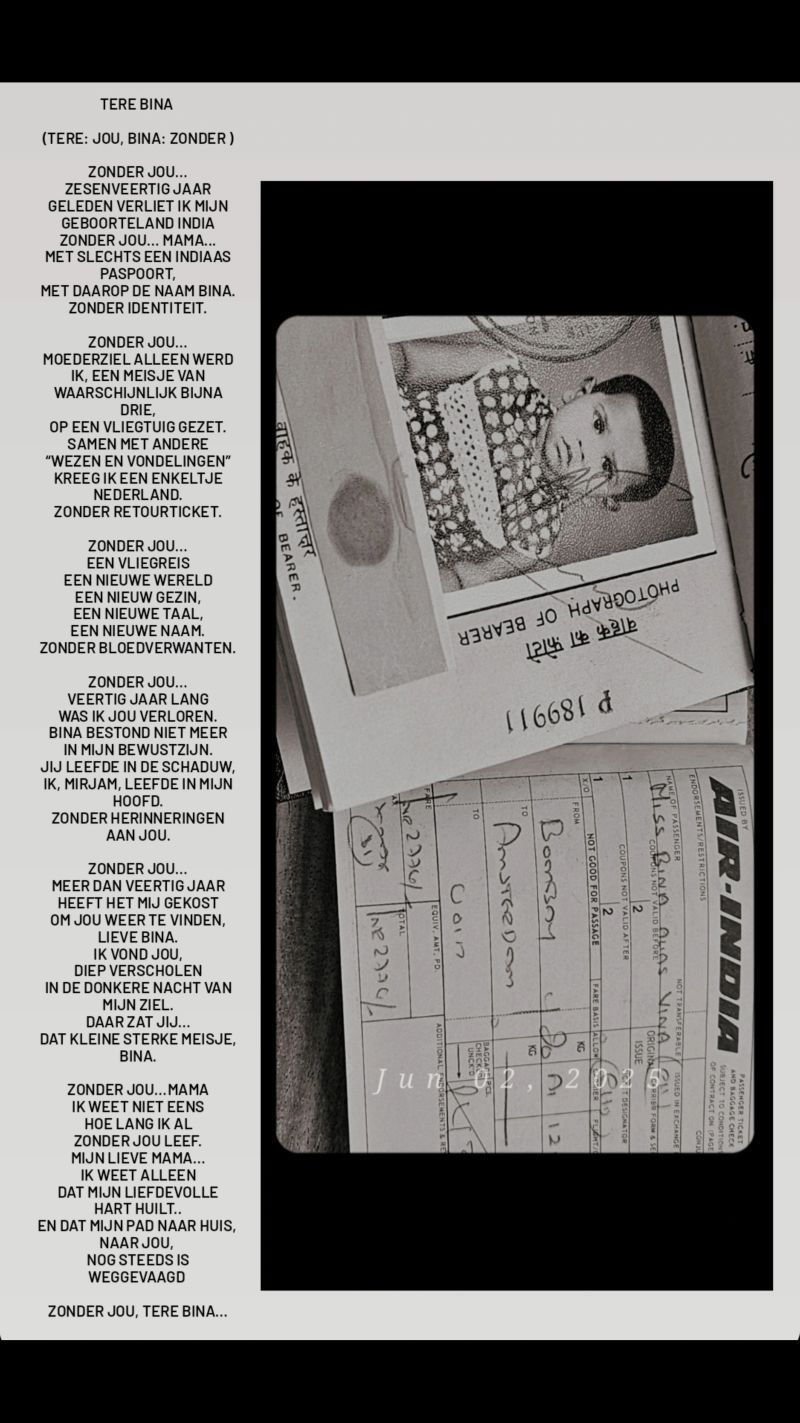 TERE BINA
(TERE: JOU, BINA: ZONDER )
ZONDER JOU...
ZESENVEERTIG JAAR
GELEDEN VERLIET IK MIJN
GEBOORTELAND INDIA
ZONDER JOU... MAMA...
MET SLECHTS EEN INDIAAS
PASPOORT,
MET DAAROP DE NAAM BINA.
ZONDER IDENTITEIT.
ZONDER JOU...
MOEDERZIEL ALLEEN WERD
IK, EEN MEISJE VAN
WAARSCHIJNLIJK BIJNA
DRIE,
OP EEN VLIEGTUIG GEZET.
SAMEN MET ANDERE
“WEZEN EN VONDELINGEN”
KREEG IK EEN ENKELTJE
NEDERLAND.
ZONDER RETOURTICKET.
ZONDER JOU...
EEN VLIEGREIS
EEN NIEUWE WERELD
EEN NIEUW GEZIN,
EEN NIEUWE TAAL,
EEN NIEUWE NAAM.
ZONDER BLOEDVERWANTEN.
ZONDER JOU...
VEERTIG JAAR LANG
WAS IK JOU VERLOREN.
BINA BESTOND NIET MEER
IN MIJN BEWUSTZIJN.
JIJ LEEFDE IN DE SCHADUW,
IK, MIRJAM, LEEFDE IN MIJN
HOOFD.
ZONDER HERINNERINGEN
AAN JOU.
ZONDER JOU...
MEER DAN VEERTIG JAAR
HEEFT HET MIJ GEKOST
OM JOU WEER TE VINDEN,
LIEVE BINA.
IK VOND JOU,
DIEP VERSCHOLEN
IN DE DONKERE NACHT VAN
MIJN ZIEL.
DAAR ZAT JIJ...
DAT KLEINE STERKE MEISJE,
BINA.
ZONDER JOU...MAMA
IK WEET NIET EENS
HOE LANG IK AL
ZONDER JOU LEEF.
MIJN LIEVE MAMA...
IK WEET ALLEEN
DAT MIJN LIEFDEVOLLE
HART HUILT..
EN DAT MIJN PAD NAAR HUIS,
NAAR JOU,
NOG STEEDS IS
WEGGEVAAGD
ZONDER JOU, TERE BINA...
वाहक के हस्ताक्षर
OF BEARER.
PHOTOGRAPH OF BEARER
वाहक का फोटो
P 189911
ISSUED BY
AIR-INDIA
PASSENGER TICKET
AND BAGGAGE CHECK
SUBJECT TO CONDITIONS
OF CONTRACT ON
ENDORSEMENTS/RESTRICTIONS
NAME OF PASSENGER
NOT TRANSFERABLE
ISSUED IN EXCHANGE
MISS BINA ALIAS VINA
COUPONS NOT VALID BEFORE
ORIGINAL
ISSUE
COUPONS NOT VALID AFTER
1 2
1 2
X/O
NOT GOOD FOR PASSAGE
FARE BASIS
ALLOW
FROM
BOMBAY
KG
TO
AMSTERDAM
KG
TO
FARE
EQUIV. AMT. PD.
TOTAL
BAGGAGE
CHECKED
UNCK'D
PCS
ADDITIONAL ENDORSEMENTS
Jun 02, 2026